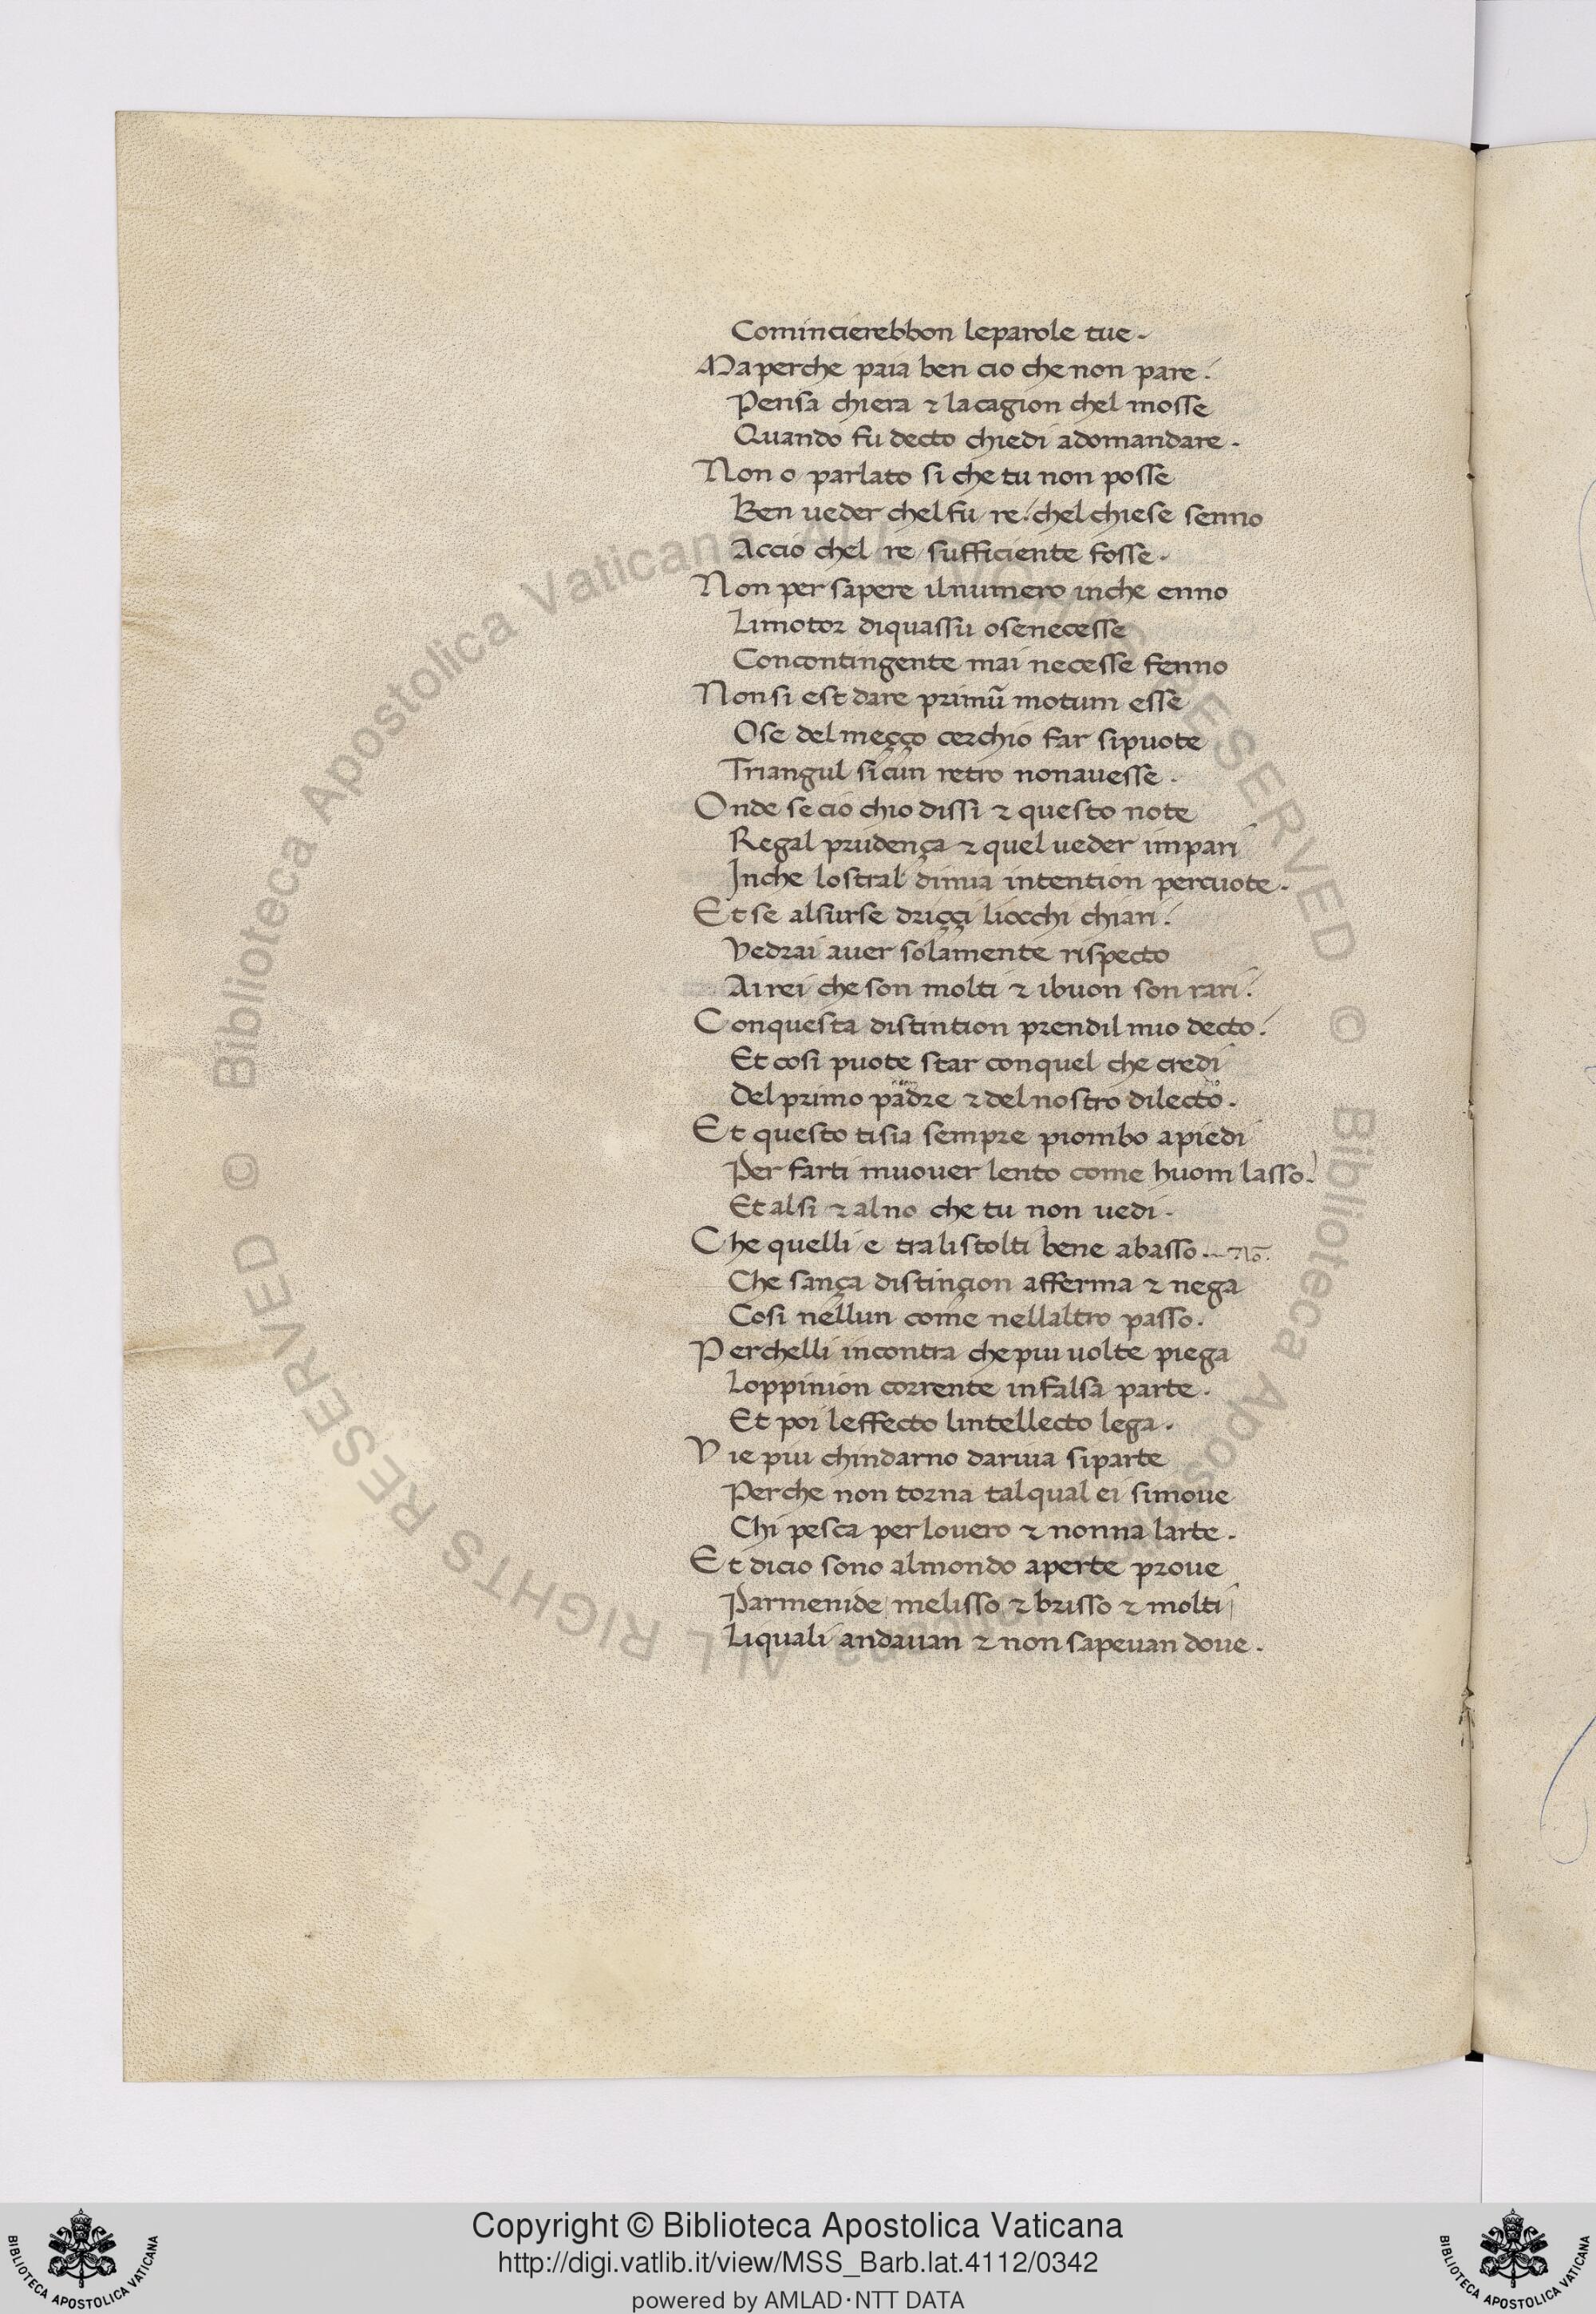 Comincierebbon leparole tue.
Maperche paia ben cio chenon pare.
Pensa chiera ⁊ lacagion chel mosse
Quando fu decto chiedi adomandare.
Non o parlato si che tu non posse
Ben ueder chel fu re. chel chiese senno
Accio chel re sufficiente fosse.
Non per sapere ilnumero inche enno
Limotor diquassu osenecesse
Concontingente mai necesse fenno
Nonsi est dare primū motum esse
Ose del meçço cerchio far sipuote
Triangul sicun retro nonauesse.
Onde secio chio dissi ⁊ questo note
Regal prudença ⁊ quel ueder impari
Inche lostral dimia intention percuote.
Et se alsurse driççi liocchi chiari.
Vedrai auer solamente rispecto
Airei che son molti ⁊ ibuon son rari.
Conquesta distintion prendil mio decto.
Et cosi puote star conquel che credi
Del primo padre ⁊ del nostro dilecto.
Et questo tisia sempre piombo apiedi
Per farti muouer lento come huom lasso.
Et alsi ⁊ alno che tu non uedi.
Che quelli e tralistolti bene abasso. No.
Che sança distinçion afferma ⁊ nega
Cosi nellun come nellaltro passo.
Perchelli incontra chepiu uolte piega
Loppinion corrente infalsa parte.
Et poi leffecto lintellecto lega.
Vie piu chindarno dariua siparte
Perche non torna talqual ei simoue
Chi pesca per louero ⁊ nonna larte.
Et dicio sono almondo aperte proue
Parmenide melisso ⁊ brisso ⁊ molti
Liquali andauan ⁊ non sapeuan doue.
© Biblioteca Apostolica Vaticana ALL RIGHTS RESERVED © Biblioteca Apostolica Vaticana ALL RIGHTS RESERVED
Copyright © Biblioteca Apostolica Vaticana
http://digi.vatlib.it/view/MSS_Barb.lat.4112/0342
powered by AMLAD·NTT DATA
BIBLIOTECA APOSTOLICA VATICANA
BIBLIOTECA APOSTOLICA VATICANA